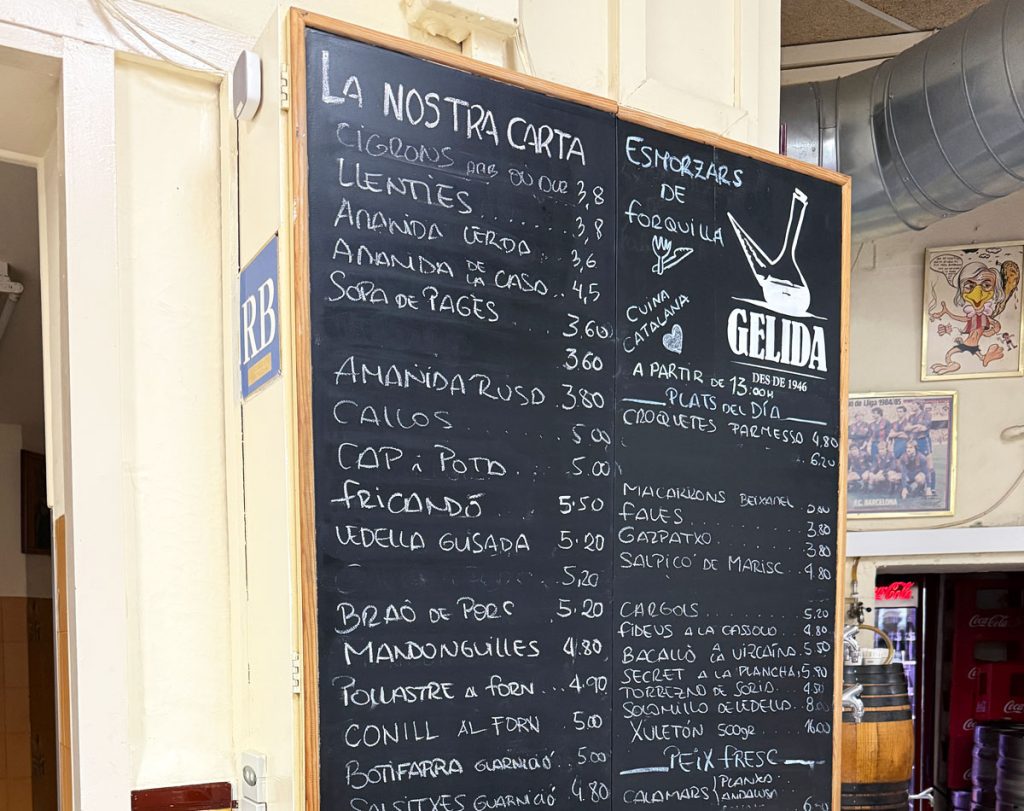 LA NOSTRA CARTA
CIGRONS AMB OU DUR 3,8
LLENTIES ....... 3,8
AMANIDA VERDA .. 3,6
AMANIDA DE LA CASA .. 4,5
SOPA DE PAGÈS .... 3.60
3.60
AMANIDA RUSA .. 3.80
CALLOS ........ 5.00
CAP i POTA ... 5.00
FRICANDÓ .... 5.50
VEDELLA GUISADA . 5.20
5,20
BRAÓ DE PORC 5.20
MANDONGUILLES 4.80
POLLASTRE AL FORN ... 4.90
CONILL AL FORN 5.00
BOTIFARRA GUARNICIÓ .. 5.00
SALSITXES GUARNICIÓ 4.80
ESMORZARS
DE
FORQUILLA
CUINA
CATALANA
GELIDA
DES DE 1946
A PARTIR DE 13.00H
PLATS DEL DÍA
CROQUETES PARMESSO 4.80
6.20
MACARRONS BEIXAMEL
FAVES ....... 3.80
GAZPATXO ..... 3.80
SALPICÓ DE MARISC .. 4.80
CARGOLS ........ 5.20
FIDEUS A LA CASSOLA .. 4.80
BACALLÀ A LA VIZCAÍNA 5.50
SECRET A LA PLANCHA 5.90
TORREZNO DE SORIA .. 4.50
SOLOMILLO DE VEDELLA .. 8.00
XULETÓN 500gr 16.00
PEIX FRESC
CALAMARS PLANXA
ANDALUSA
RB
de Lliga 1984/85
F.C. BARCELONA
Coca-Cola
Coca